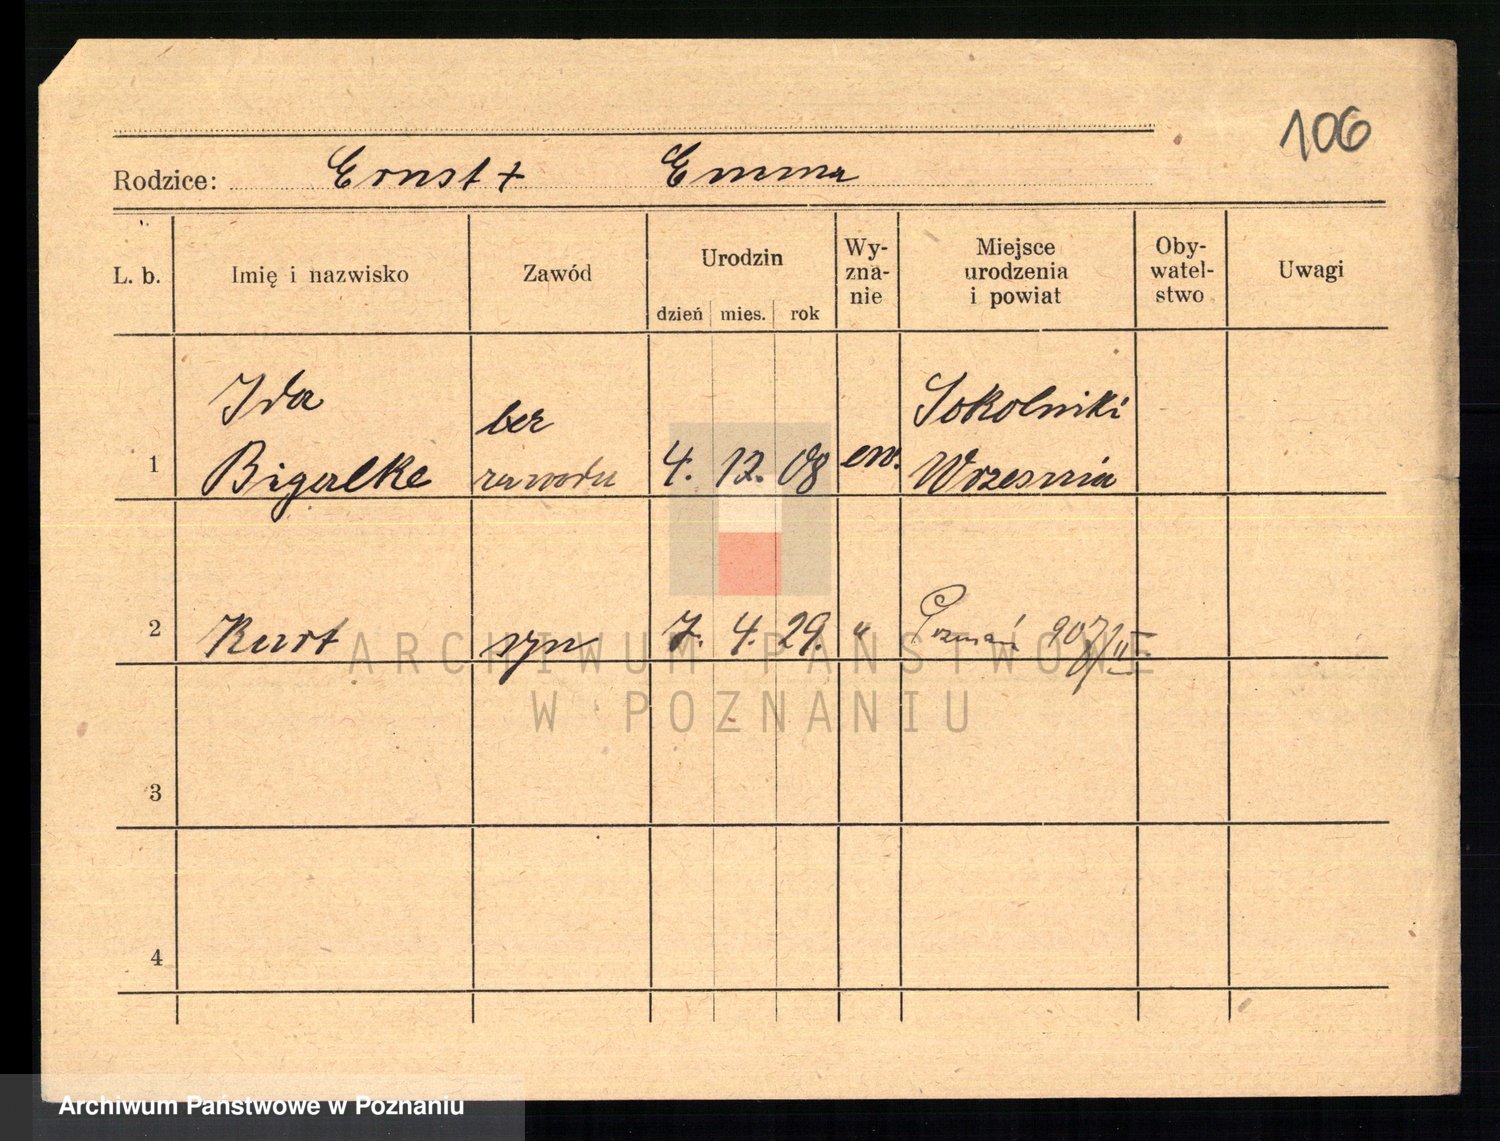 106
Rodzice: Ernst + Emma
L. b. Imię i nazwisko Zawód Urodzin Wy-zna-nie Miejsce urodzenia i powiat Oby-watel-stwo Uwagi
dzień mies. rok
Ida Sokolniki
bez
1 Bigalke zawodu 4. 12. 08 ew. Września
2 Kurt syn 7. 4. 29. " Poznań
3
4
ARCHIWUM PAŃSTWOWE
W POZNANIU
Archiwum Państwowe w Poznaniu